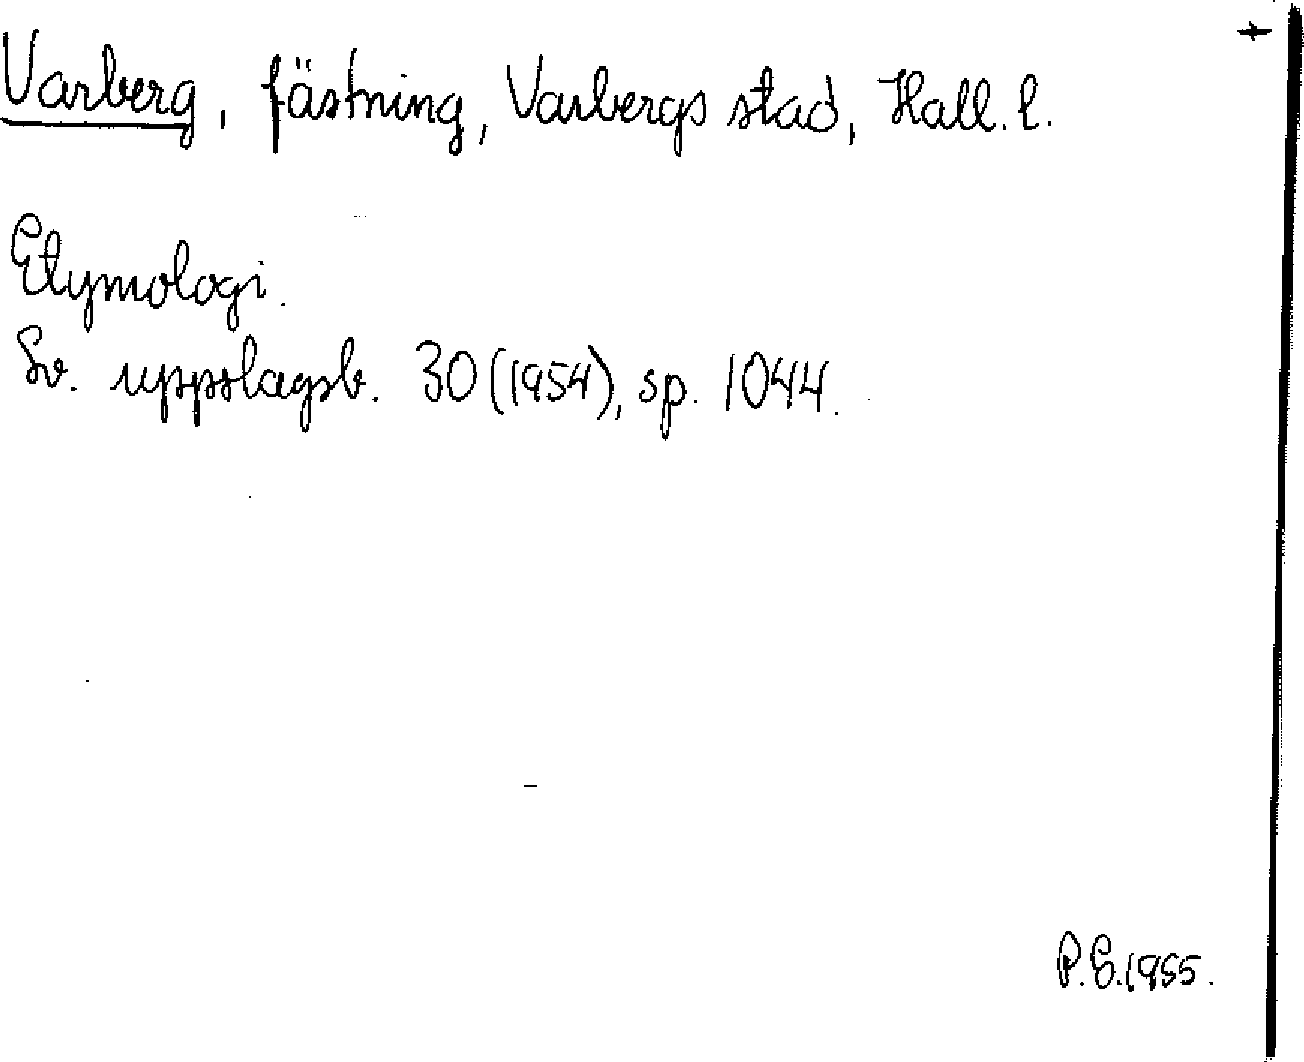 +
Varberg, fästning, Varbergs stad, Hall. l.
Etymologi.
Sv. uppslagsb. 30 (1954), sp. 1044.
P.S. 1955.